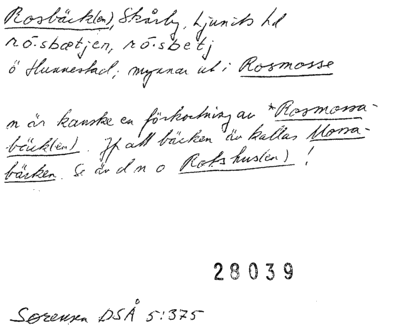 Rosbäck(en), Skårby, Ljunits hd
ró.sbætjen, ró.sbetj
ö Hunnestad; mynnar ut i Rosmosse
n är kanske en förkortning av *Rosmossa-
bäck(en). Jf att bäcken äv kallas Mossa-
bäcken. Se äv d n o Rotshus(en)!
28039
Sørensen DSÅ 5:375